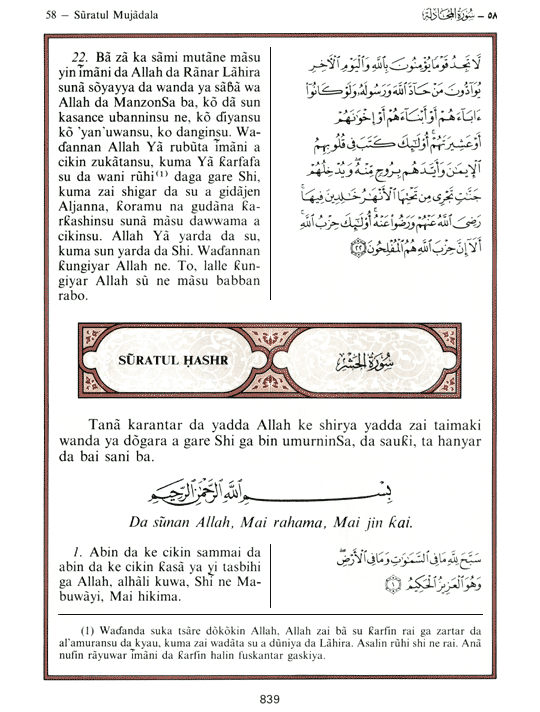 58 — Sũratul Mujãdala
٥٨ - سُورَةُ المُجَادلَة
22. Bã zã ka sãmi mutãne mãsu
yin ĩmãni da Allah da Rãnar Lãhira
sunã sõyayya da wanda ya sãɓã wa
Allah da ManzonSa ba, kõ dã sun
kasance ubanninsu ne, kõ ɗiyansu
kõ 'yan'uwansu, ko danginsu. Wa-
ɗannan Allah Yã rubũta ĩmãni a
cikin zukãtansu, kuma Yã ƙarfafa
su da wani rũhi(1) daga gare Shi,
kuma zai shigar da su a gidãjen
Aljanna, ƙoramu na gudãna ƙa-
rƙashinsu sunã mãsu dawwama a
cikinsu. Allah Yã yarda da su,
kuma sun yarda da Shi. Waɗannan
ƙungiyar Allah ne. To, lalle ƙun-
giyar Allah sũ ne mãsu babban
rabo.
لَّا تَجِدُ قَوْمًا يُؤْمِنُونَ بِٱللَّهِ وَٱلْيَوْمِ ٱلْءَاخِرِ
يُوَآدُّونَ مَنْ حَآدَّ ٱللَّهَ وَرَسُولَهُۥ وَلَوْ كَانُوٓا۟
ءَابَآءَهُمْ أَوْ أَبْنَآءَهُمْ أَوْ إِخْوَٰنَهُمْ
أَوْ عَشِيرَتَهُمْ أُو۟لَٰٓئِكَ كَتَبَ فِى قُلُوبِهِمُ
ٱلْإِيمَٰنَ وَأَيَّدَهُم بِرُوحٍ مِّنْهُ وَيُدْخِلُهُمْ
جَنَّٰتٍ تَجْرِى مِن تَحْتِهَا ٱلْأَنْهَٰرُ خَٰلِدِينَ فِيهَا
رَضِىَ ٱللَّهُ عَنْهُمْ وَرَضُوا۟ عَنْهُ أُو۟لَٰٓئِكَ حِزْبُ ٱللَّهِ
أَلَآ إِنَّ حِزْبَ ٱللَّهِ هُمُ ٱلْمُفْلِحُونَ ٢٢
SŨRATUL ḤASHR
سُورَةُ الحَشْرِ
Tanã karantar da yadda Allah ke shirya yadda zai taimaki
wanda ya dõgara a gare Shi ga bin umurninSa, da sauƙi, ta hanyar
da bai sani ba.
بِسْمِ ٱللَّهِ ٱلرَّحْمَٰنِ ٱلرَّحِيمِ
Da sũnan Allah, Mai rahama, Mai jin ƙai.
1. Abin da ke cikin sammai da
abin da ke cikin ƙasã ya yi tasbihi
ga Allah, alhãli kuwa, Shĩ ne Ma-
buwãyi, Mai hikima.
سَبَّحَ لِلَّهِ مَا فِى ٱلسَّمَٰوَٰتِ وَمَا فِى ٱلْأَرْضِ
وَهُوَ ٱلْعَزِيزُ ٱلْحَكِيمُ ١
(1) Waɗanda suka tsãre dõkõkin Allah, Allah zai bã su ƙarfin rai ga zartar da
al'amuransu da kyau, kuma zai wadãta su a dũniya da Lãhira. Asalin rũhi shi ne rai. Anã
nufin rãyuwar ĩmãni da ƙarfin halin fuskantar gaskiya.
839